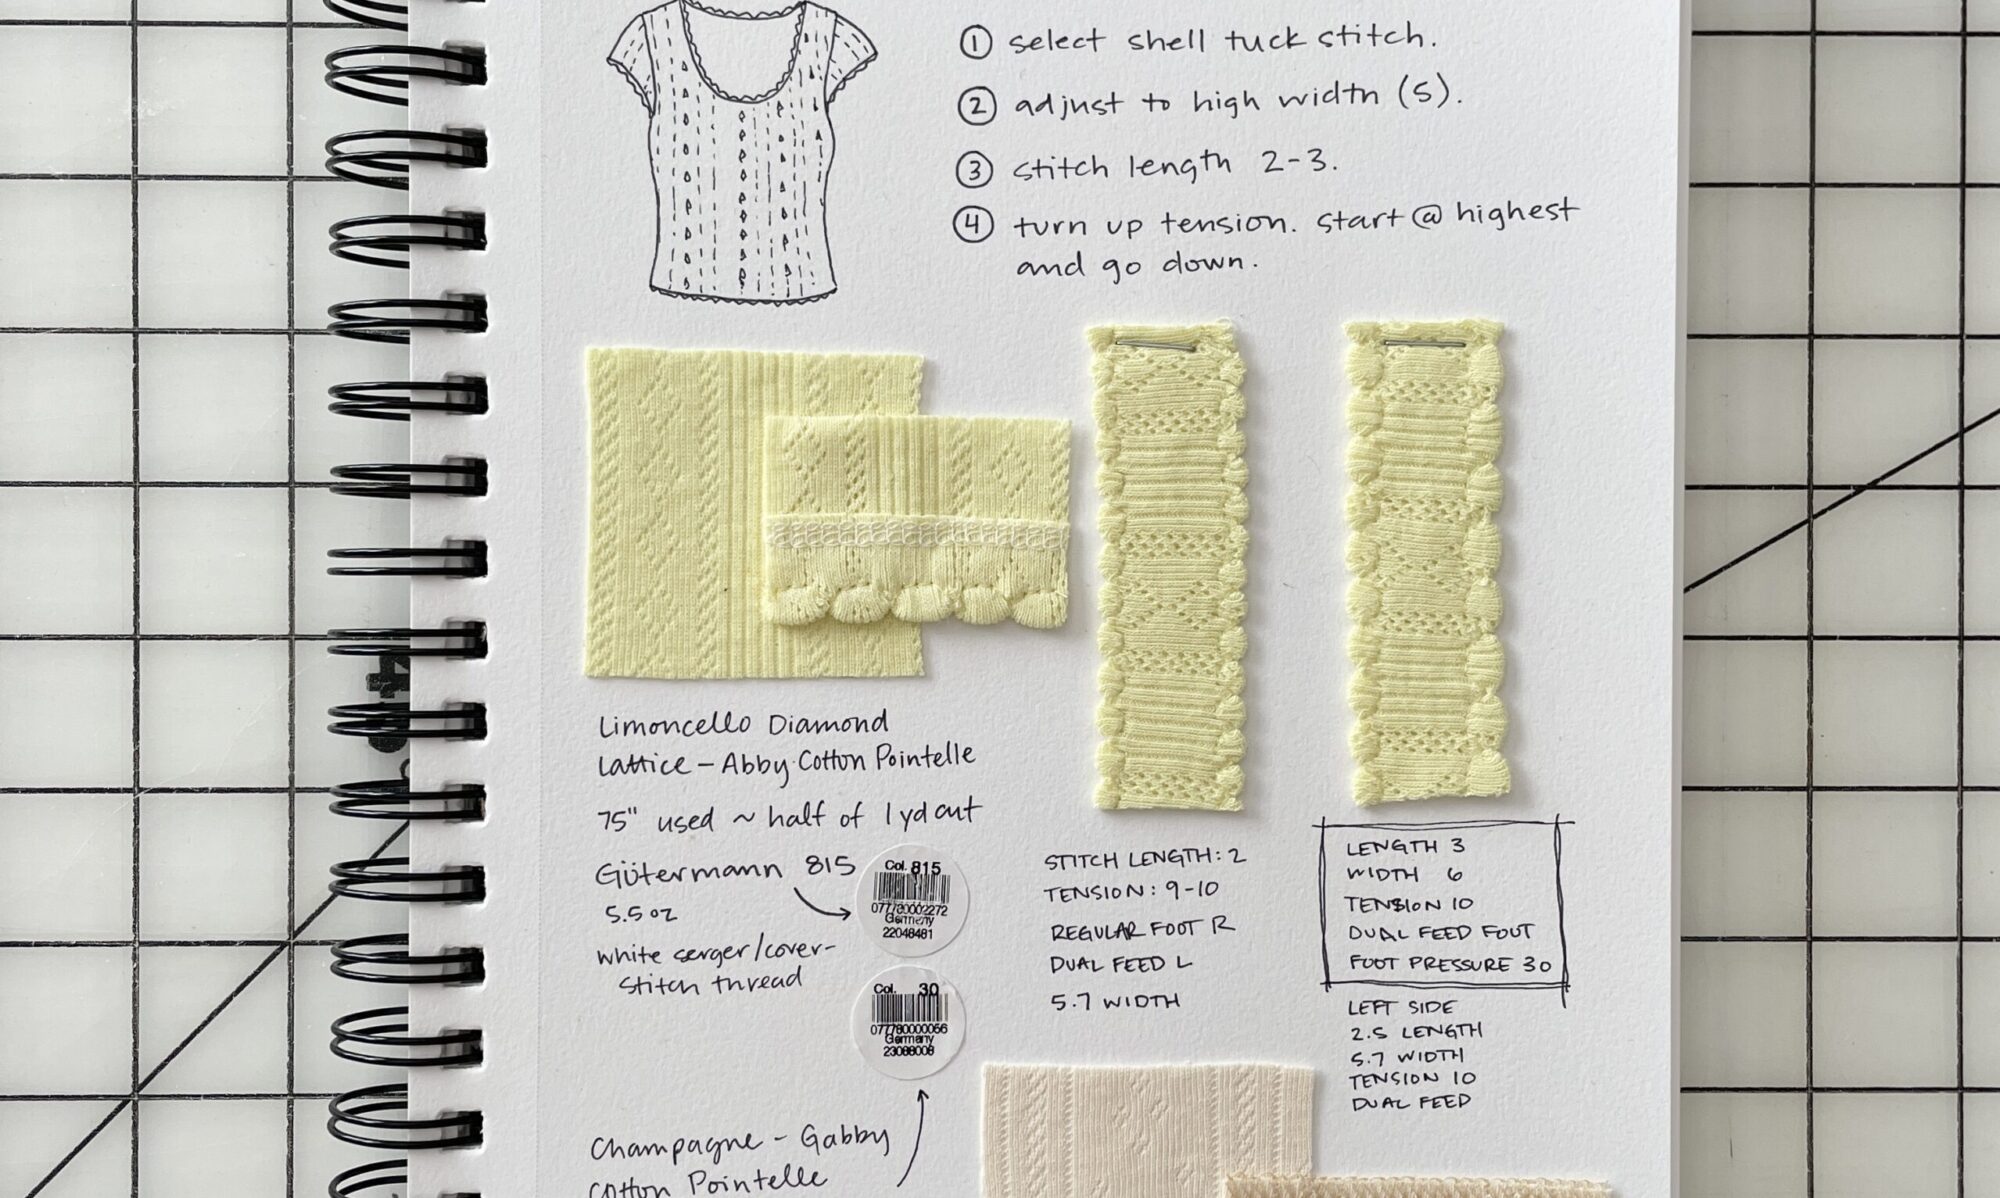 ① select shell tuck stitch.
② adjust to high width (5).
③ stitch length 2-3.
④ turn up tension. start @ highest
and go down.
Limoncello Diamond
Lattice - Abby Cotton Pointelle
75" used ~ half of 1 yd cut
Gütermann 815
5.5 oz
white serger/cover-
stitch thread
Col. 815
077780002272
Germany
22048481
Col. 30
077780000056
Germany
23088008
Champagne - Gabby
Cotton Pointelle
STITCH LENGTH: 2
TENSION: 9-10
REGULAR FOOT R
DUAL FEED L
5.7 WIDTH
LENGTH 3
WIDTH 6
TENSION 10
DUAL FEED FOOT
FOOT PRESSURE 30
LEFT SIDE
2.5 LENGTH
5.7 WIDTH
TENSION 10
DUAL FEED